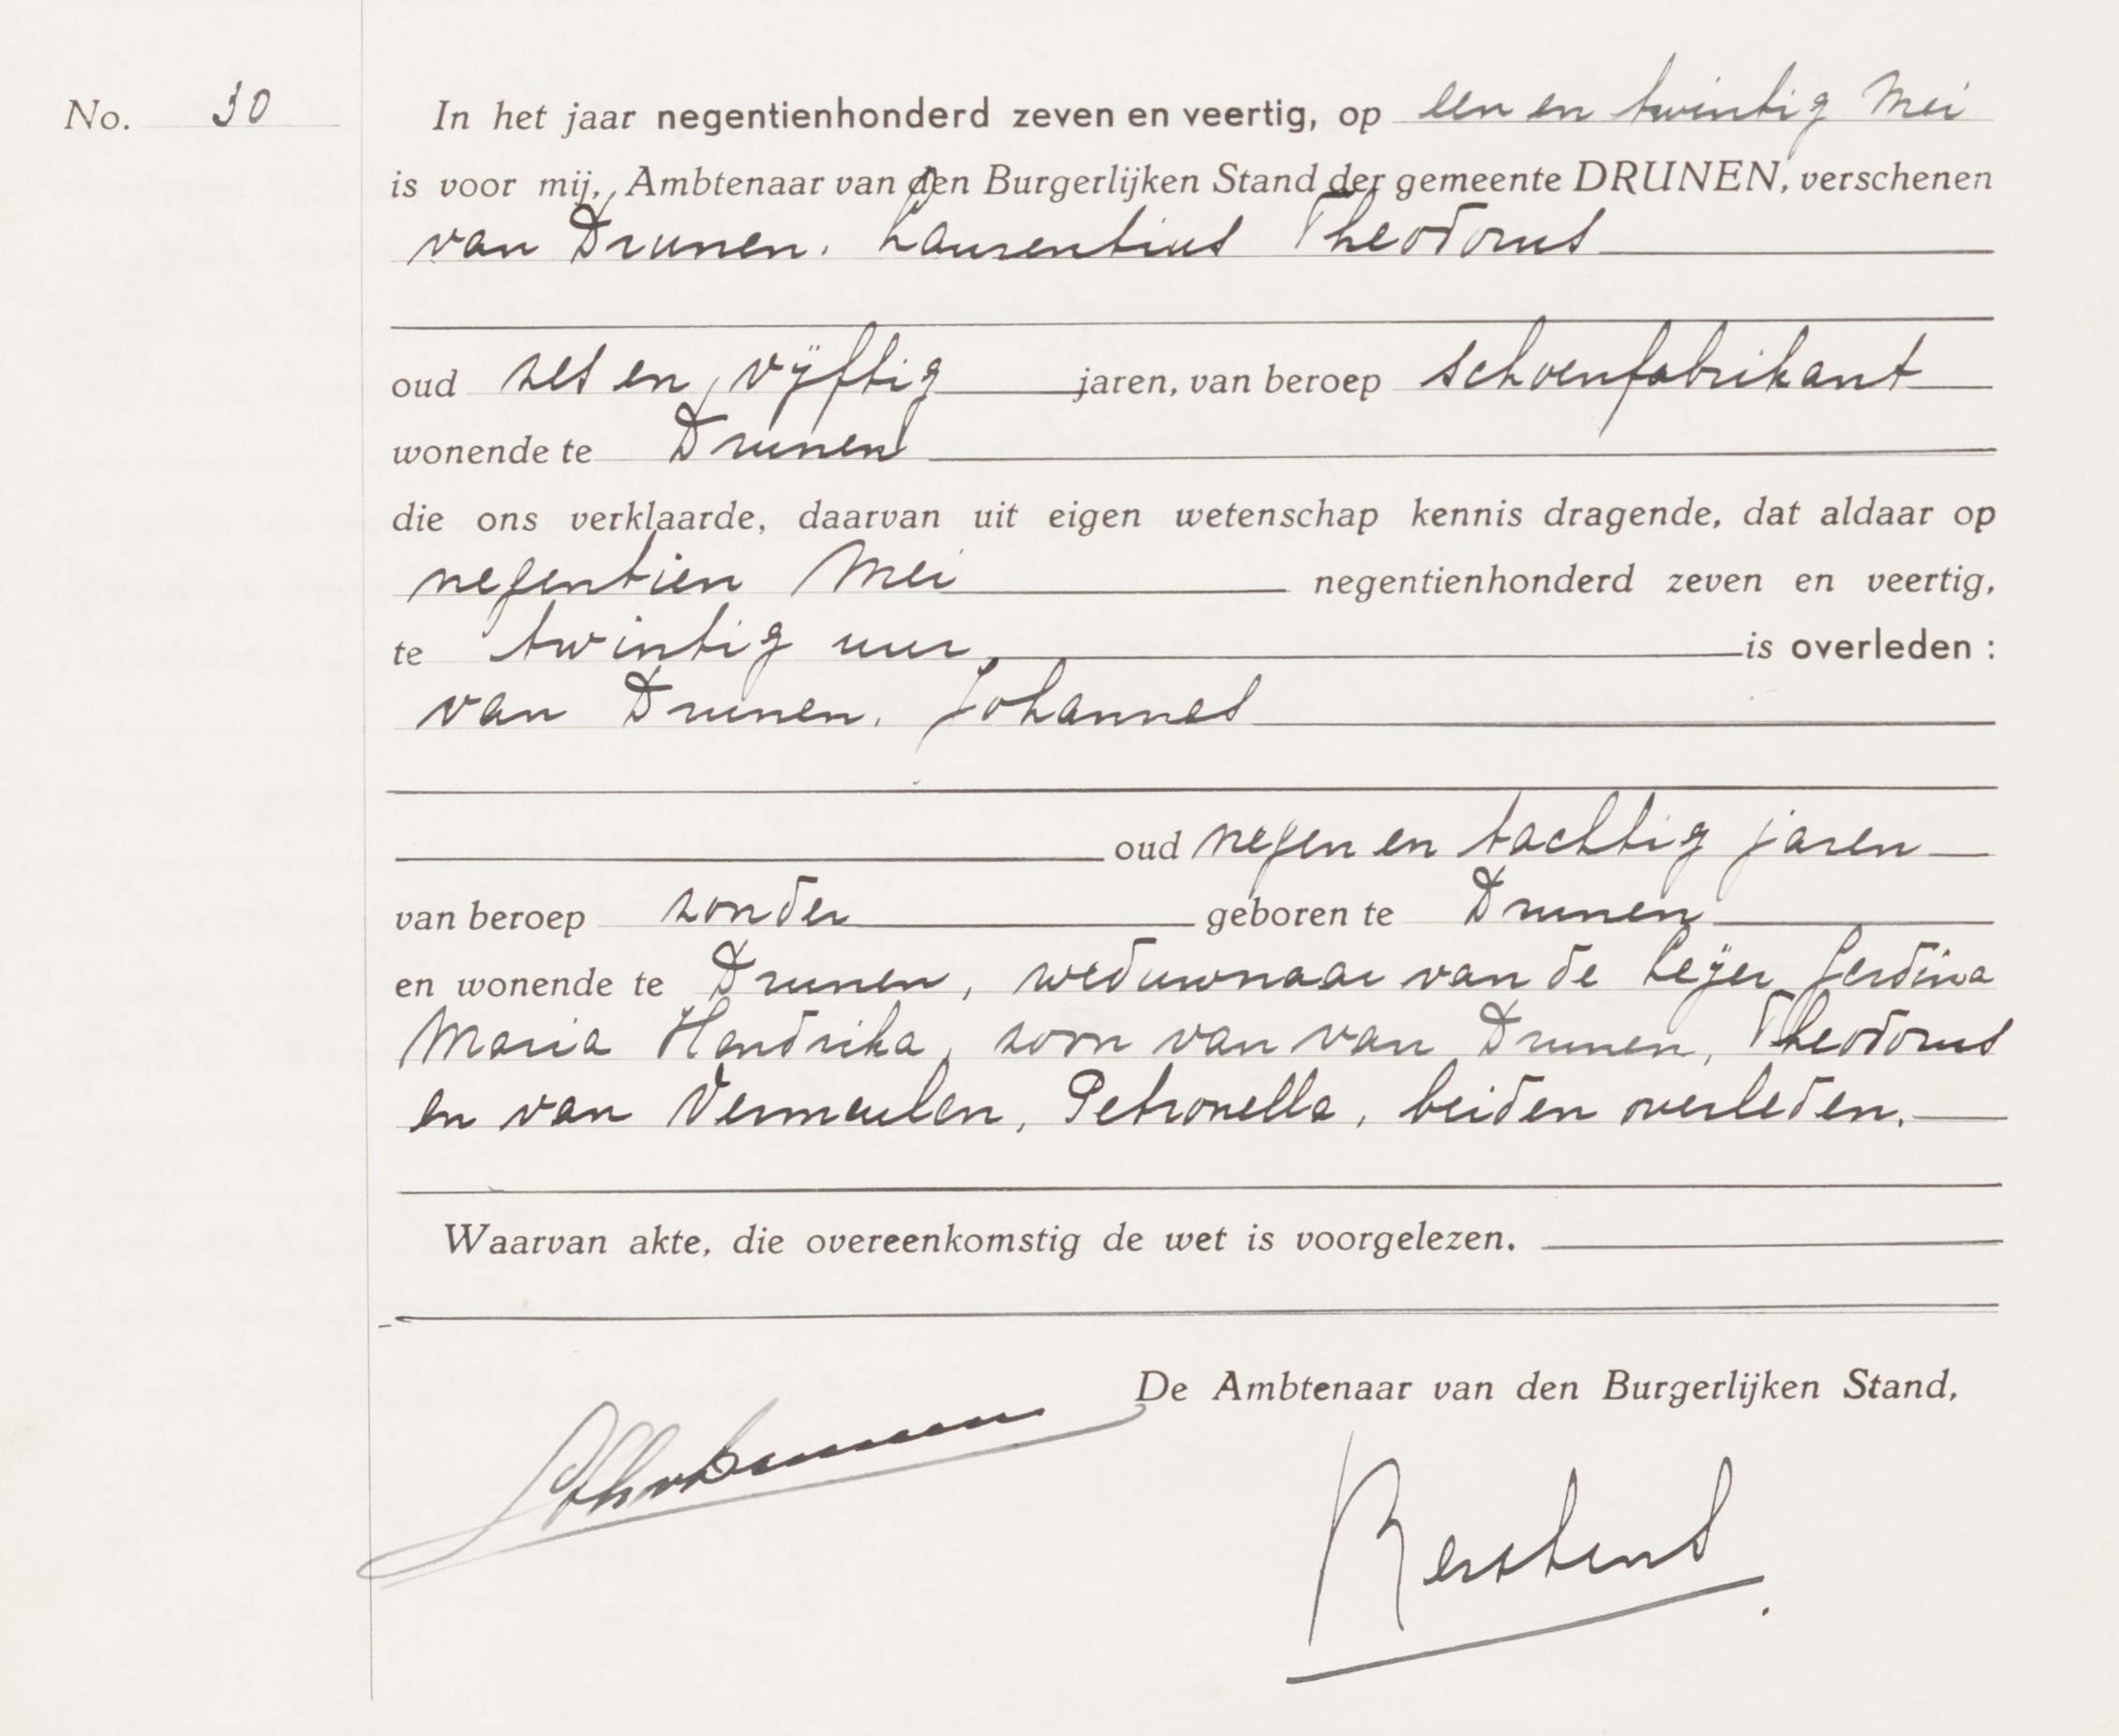 No. 30
In het jaar negentienhonderd zeven en veertig, op een en twintig Mei
is voor mij, Ambtenaar van den Burgerlijken Stand der gemeente DRUNEN, verschenen
van Drunen. Laurentius Theodorus
oud zes en vijftig jaren, van beroep schoenfabrikant
wonende te Drunen
die ons verklaarde, daarvan uit eigen wetenschap kennis dragende, dat aldaar op
negentien Mei negentienhonderd zeven en veertig,
te twintig uur is overleden :
van Drunen. Johannes
oud negen en tachtig jaren
van beroep zonder geboren te Drunen
en wonende te Drunen, weduwnaar van de Leijer Gerdina
Maria Hendrika, zoon van van Drunen, Theodorus
en van Vermeulen, Petronella, beiden overleden.
Waarvan akte, die overeenkomstig de wet is voorgelezen.
De Ambtenaar van den Burgerlijken Stand,